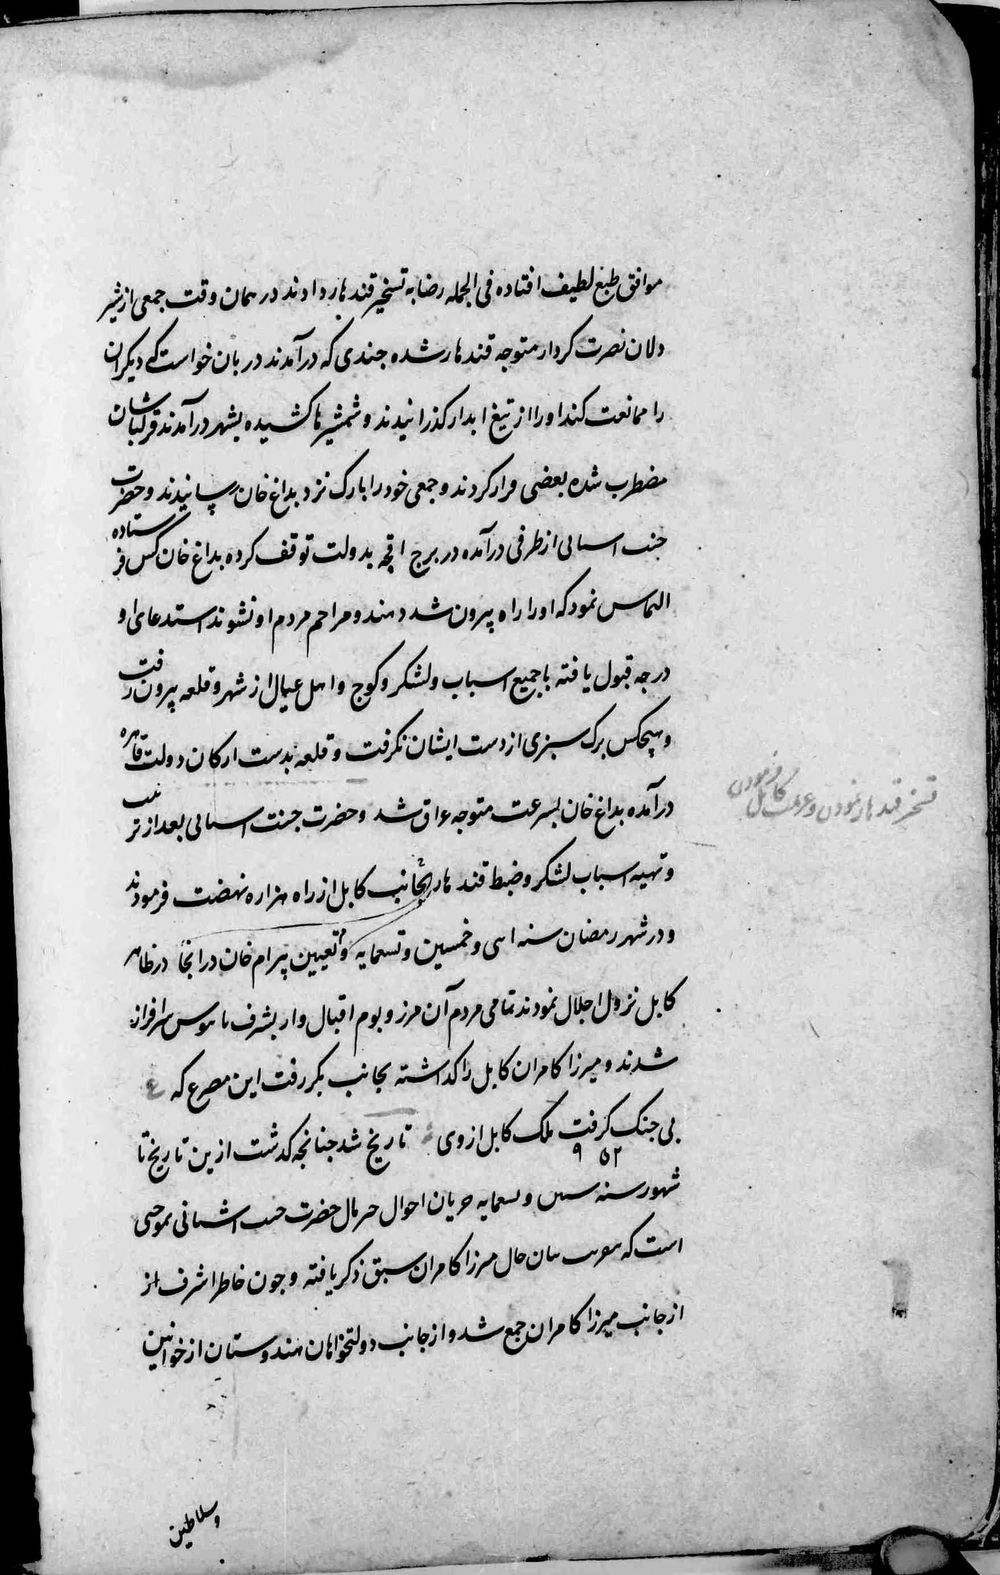 موافق طبع لطیف افتاده فی الجمله رضا به تسخیر قندهار دادند در همان وقت جمعی از شیر
دلان نصرت کردار متوجه قندهار شده جندی که درآمدند دربان خواست که دیکران
را ممانعت کند او را از تیغ ابدار کذرانیدند و شمشیرها کشیده بشهر درآمدند قزلباشان
مضطرب شده بعضی فرار کردند و جمعی خود را بارک نزد بداغ خان رسانیدند و حضرت
جنت اسیانی از طرفی درآمده در برج اقچه بدولت توقف کرده بداغ خان کس فرستاده
التماس نمود که او را راه بیرون شد دهند و مزاحم مردم او نشوند استدعای او
درجه قبول یافته با جمیع اسباب و لشکر و کوچ و اهل عیال از شهر و قلعه بیرون رفت
و هیچکس برک سبزی از دست ایشان نکرفت و قلعه بدست ارکان دولت قاهره
درآمده بداغ خان بسرعت متوجه عراق شد و حضرت جنت اسیانی بعد از ترتیب
و تهیه اسباب لشکر و ضبط قندهار بجانب کابل از راه هزاره نهضت فرمودند
و در شهر رمضان سنه اسی و خمسین و تسعمایه و تعیین بیرام خان در انجا در ظاهر
کابل نزول اجلال نمودند تمامی مردم آن مرز و بوم اقبال وار بشرف پابوس سرافراز
شدند و میرزا کامران کابل را کداشته بجانب بکر رفت این مصرع که ع
بی جنک کرفت ملک کابل از وی تاریخ شد جنانجه کدشت ازین تاریخ تا
۹۵۲
شهور سنه ستین و تسعمایه جریان احوال حضرت جنت اشیانی بموجبی
است که بیان حال میرزا کامران سبق ذکر یافته و چون خاطر اشرف از
از جانب میرزا کامران جمع شد و از جانب دولتخواهان هندوستان از خوانین
وسلاطین
تسخیر قندهار نمودن و عزیمت کابل فرمودن